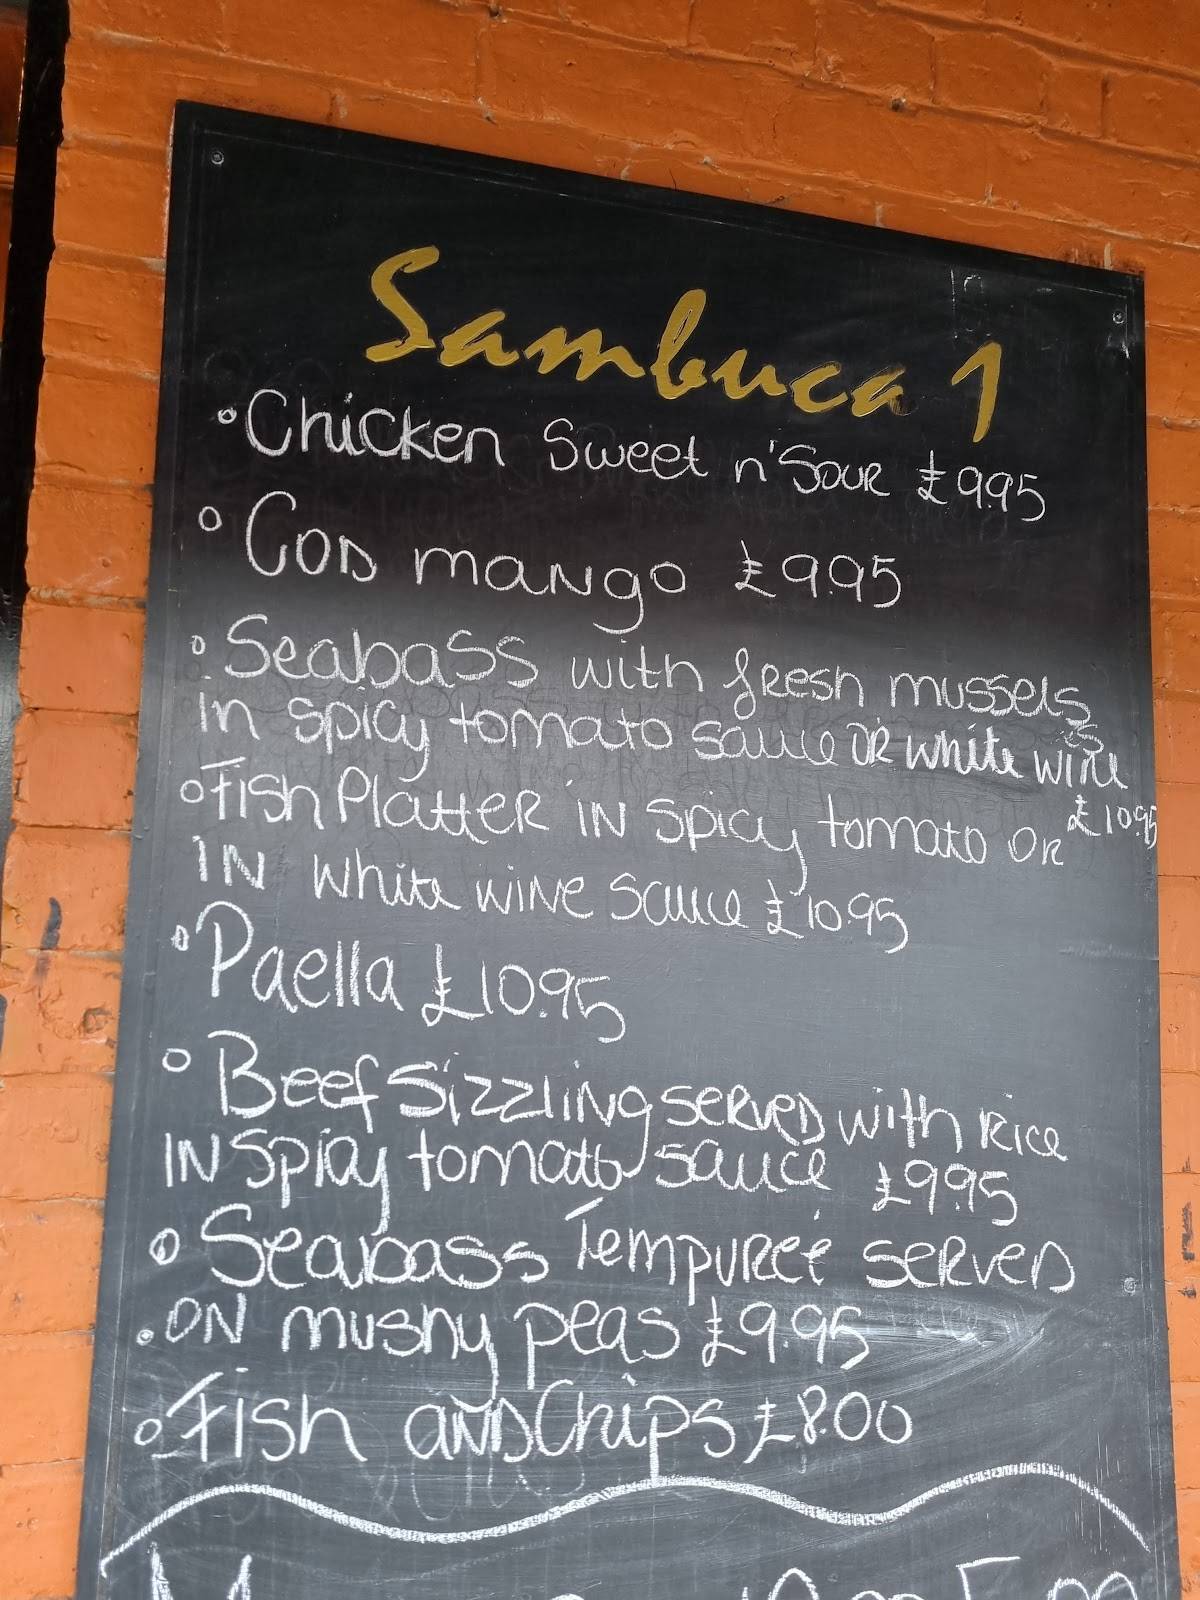 Sambuca 1
Chicken Sweet n' Sour £9.95
Cod mango £9.95
Seabass with fresh mussels
in spicy tomato sauce or white wine
£10.95
Fish Platter in spicy tomato or
in white wine sauce £10.95
Paella £10.95
Beef Sizzling served with rice
in spicy tomato sauce £9.95
Seabass Tempureé served
on mushy peas £9.95
Fish and Chips £8.00